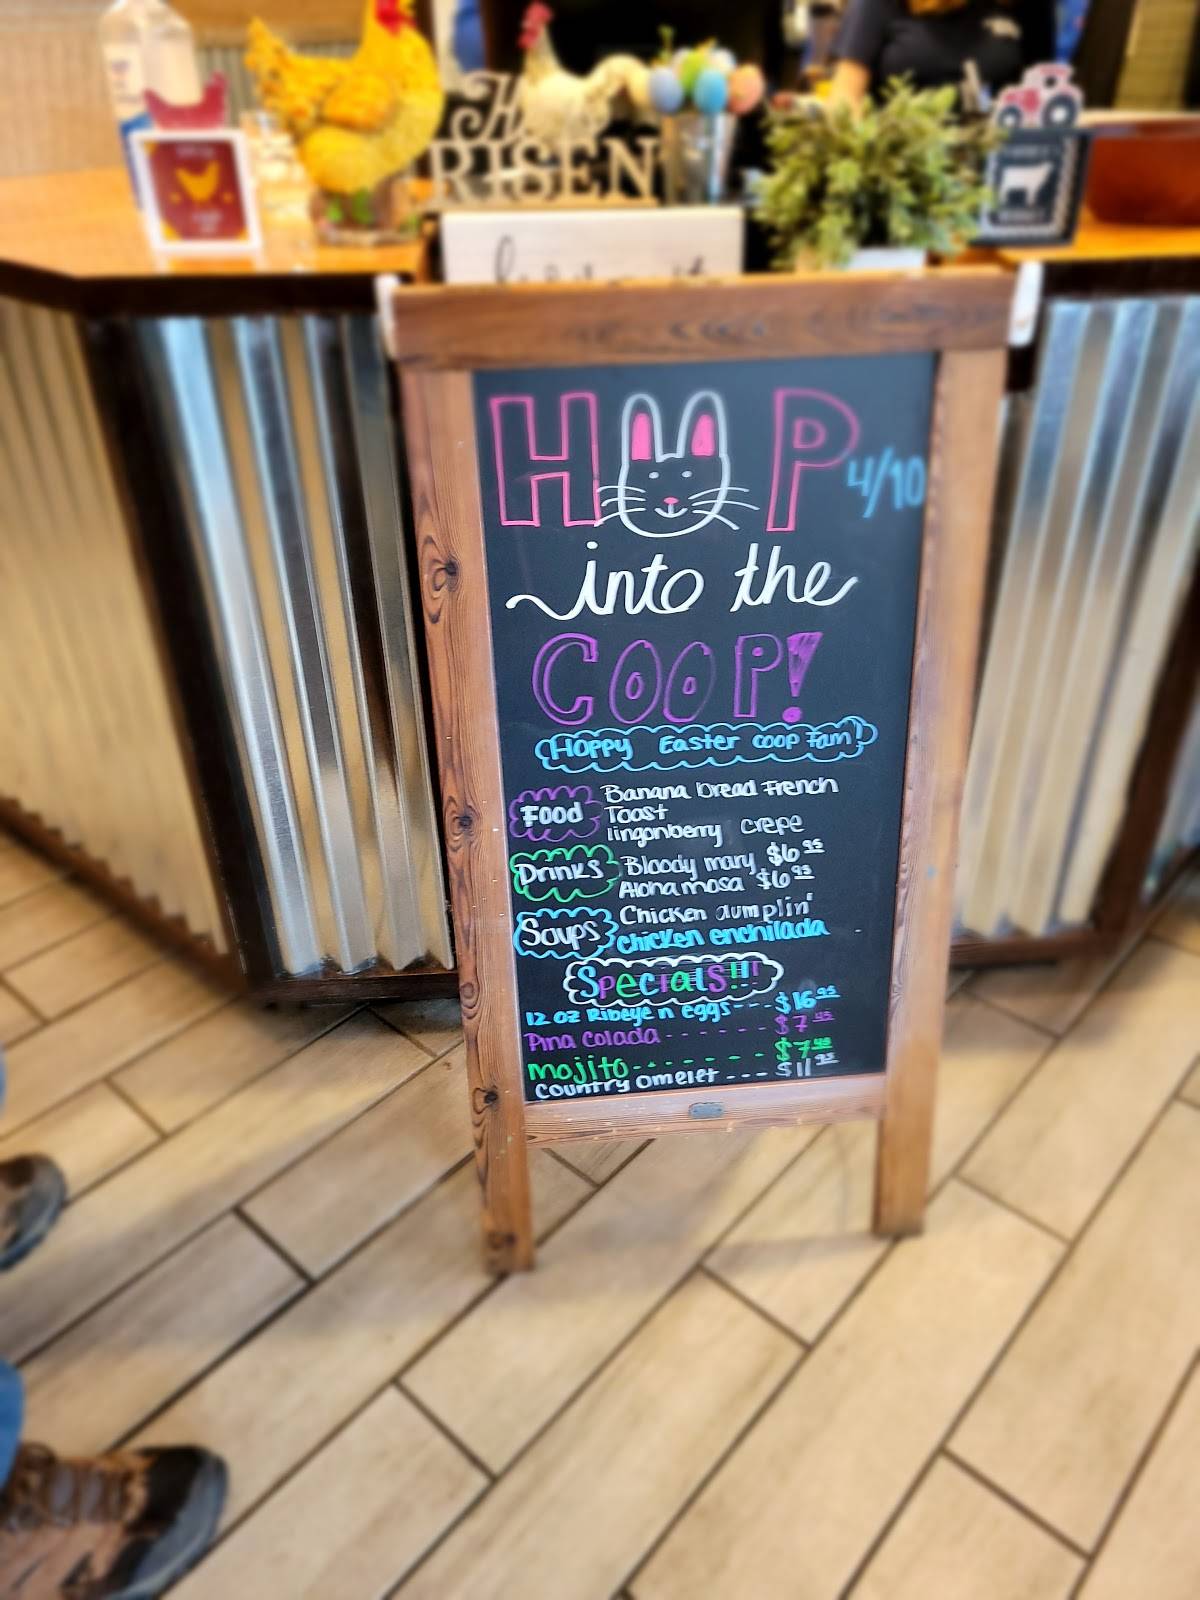 RISEN
H P 4/10
into the
COOP!
Hoppy Easter coop Fam!
Food Banana bread French
Toast
lingonberry crepe
Drinks Bloody mary $6.95
Alohamosa $6.95
Soups Chicken dumplin'
chicken enchilada
Specials!!!
12 oz Ribeye n eggs --- $16.95
Pina Colada - - - - - - $7.45
Mojito - - - - - - - $7.45
Country omelet --- $11.95